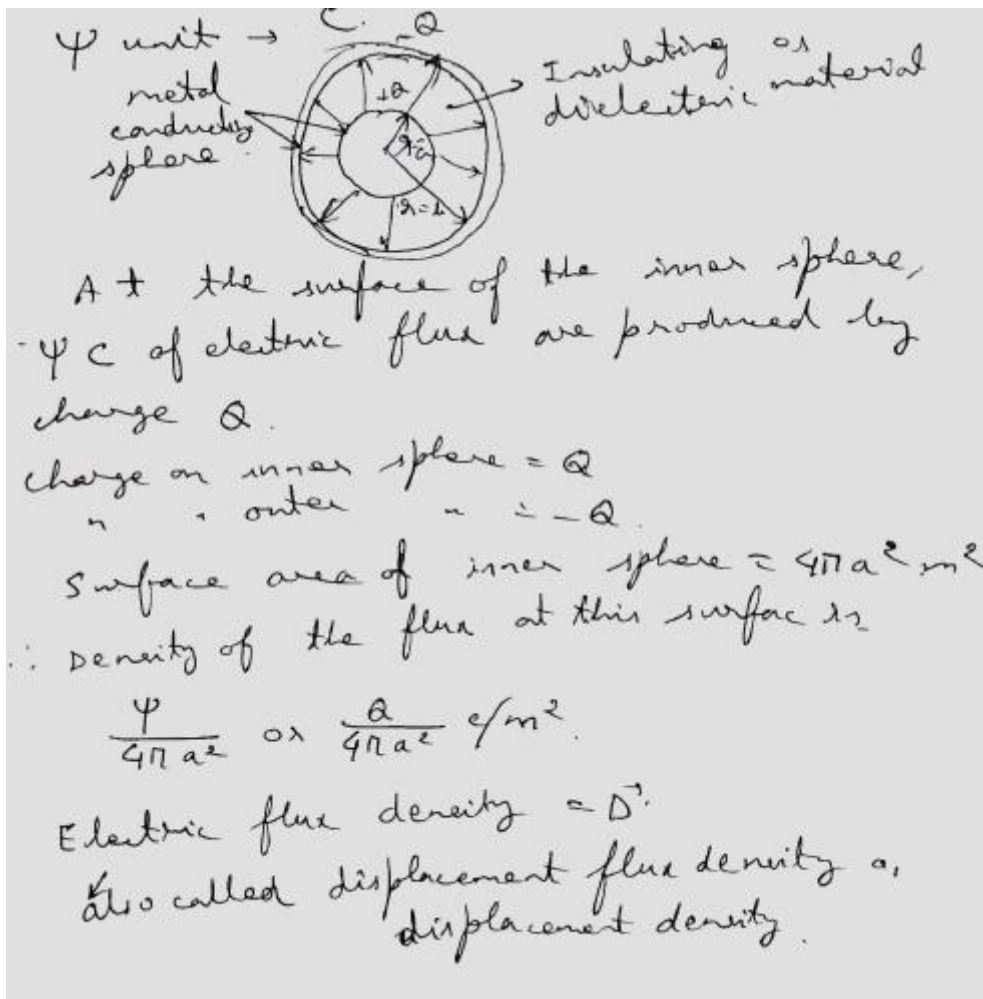 Ψ unit → C.
-Q
metal
conducting
sphere.
+Q
r=a
r=b
Insulating or
dielectric material
At the surface of the inner sphere,
Ψ C of electric flux are produced by
charge Q.
Charge on inner sphere = Q
" " outer " = -Q.
Surface area of inner sphere = 4πa² m²
∴ Density of the flux at this surfac is
Ψ/4πa² or Q/4πa² c/m².
Electric flux density = D⃗.
also called displacement flux density or
displacement density.